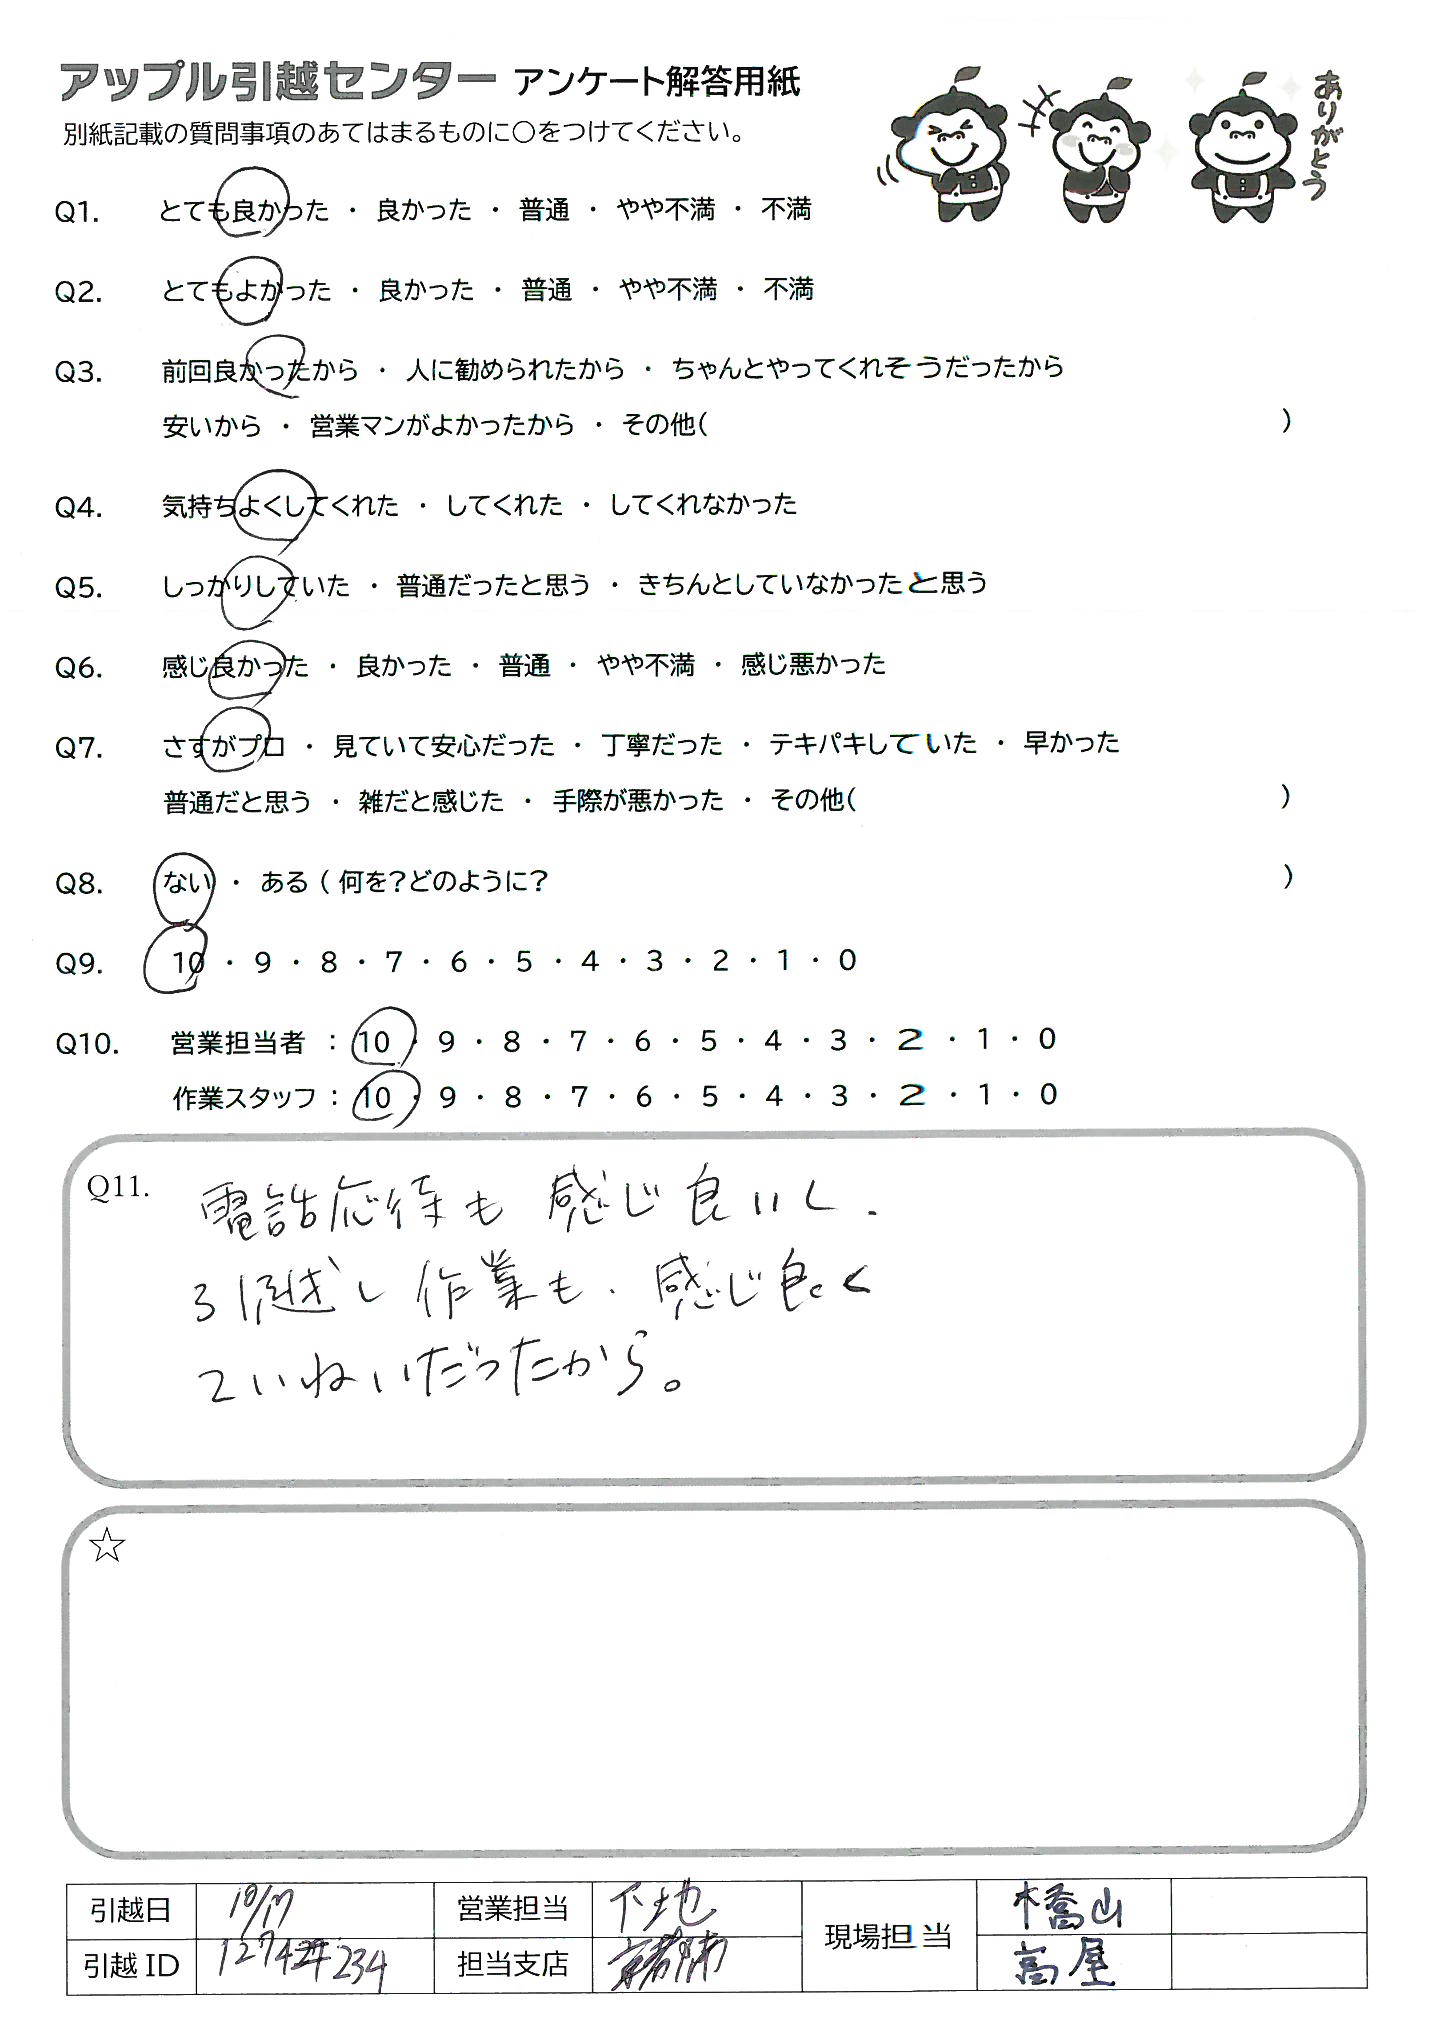 アップル引越センター アンケート解答用紙
別紙記載の質問事項のあてはまるものに○をつけてください。
ありがとう
Q1. とても良かった ・ 良かった ・ 普通 ・ やや不満 ・ 不満
Q2. とてもよかった ・ 良かった ・ 普通 ・ やや不満 ・ 不満
Q3. 前回良かったから ・ 人に勧められたから ・ ちゃんとやってくれそうだったから
安いから ・ 営業マンがよかったから ・ その他( )
Q4. 気持ちよくしてくれた ・ してくれた ・ してくれなかった
Q5. しっかりしていた ・ 普通だったと思う ・ きちんとしていなかったと思う
Q6. 感じ良かった ・ 良かった ・ 普通 ・ やや不満 ・ 感じ悪かった
Q7. さすがプロ ・ 見ていて安心だった ・ 丁寧だった ・ テキパキしていた ・ 早かった
普通だと思う ・ 雑だと感じた ・ 手際が悪かった ・ その他( )
Q8. ない ・ ある ( 何を?どのように? )
Q9. 10 ・ 9 ・ 8 ・ 7 ・ 6 ・ 5 ・ 4 ・ 3 ・ 2 ・ 1 ・ 0
Q10. 営業担当者 : 10 ・ 9 ・ 8 ・ 7 ・ 6 ・ 5 ・ 4 ・ 3 ・ 2 ・ 1 ・ 0
作業スタッフ : 10 ・ 9 ・ 8 ・ 7 ・ 6 ・ 5 ・ 4 ・ 3 ・ 2 ・ 1 ・ 0
Q11. 電話応待も 感じ良いし、
引越ぎし作業も、感じ良く
ていねいだったから。
☆
引越日 10/17 営業担当 下地 現場担当 橋山
引越ID 担当支店 高屋